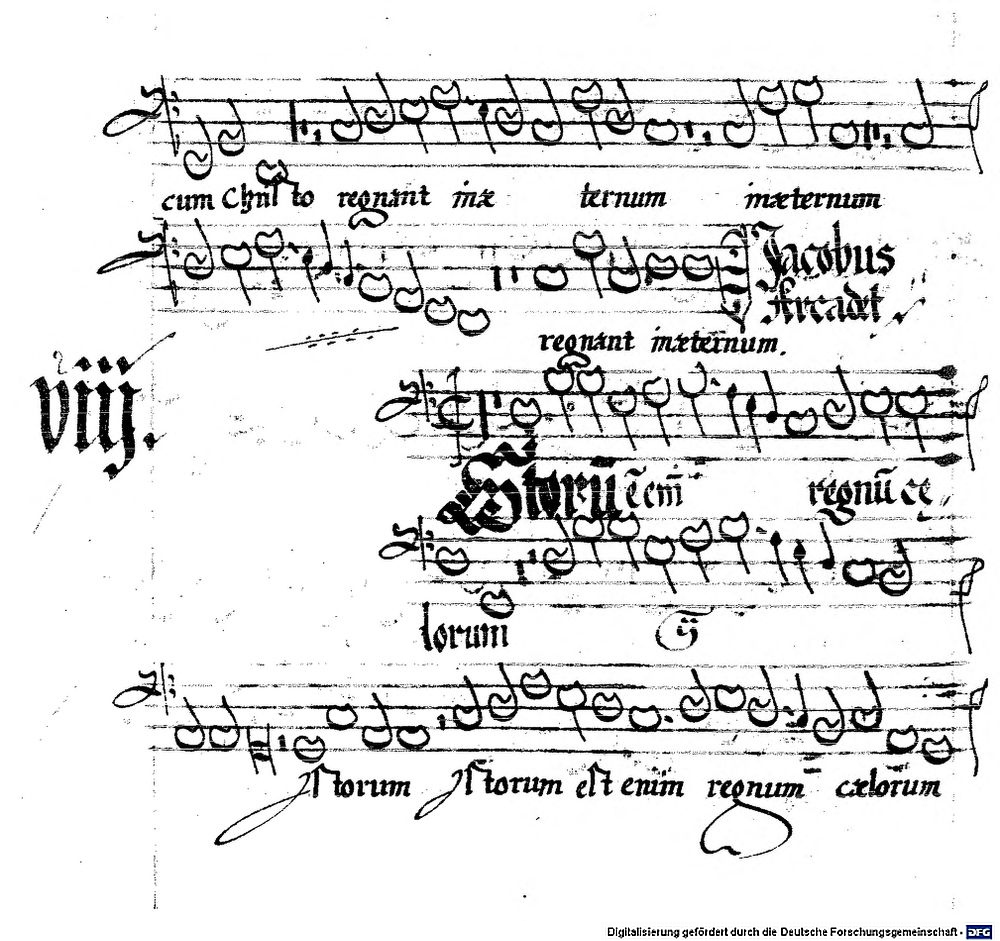 cum Christo regnant inæ ternum inæternum
Jacobus
Arcadet.
regnant inæternum.
viij.
Istorū ē em̄ regnū ce
lorum ij
Istorum Istorum est enim regnum cælorum
Digitalisierung gefördert durch die Deutsche Forschungsgemeinschaft - DFG